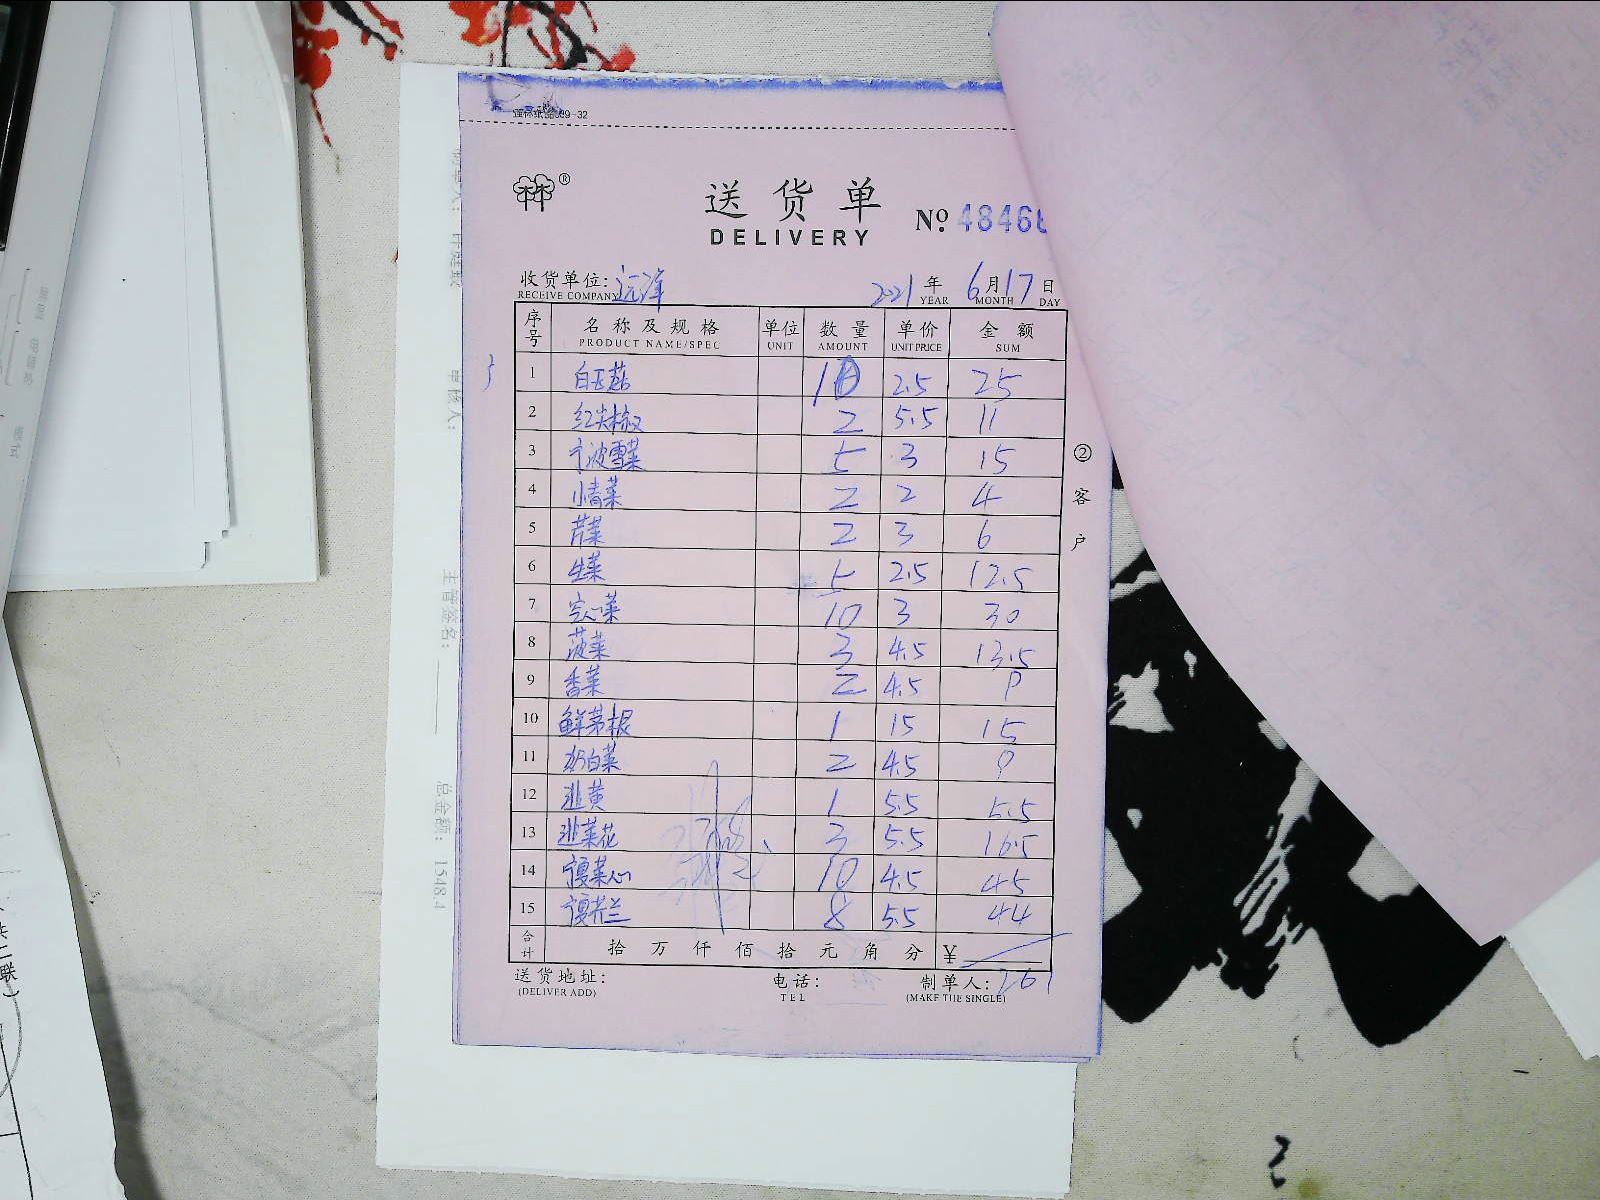 送货单
DELIVERY
No. 48466
收货单位: 远洋 2021年 6月17日
RECEIVE COMPANY YEAR MONTH DAY
序号 名称及规格 单位 数量 单价 金额
PRODUCT NAME/SPEC UNIT AMOUNT UNIT PRICE SUM
1 白玉菇 10 2.5 25
2 红尖椒 2 5.5 11
3 宁波雪菜 5 3 15
4 小青菜 2 2 4
5 芹菜 2 3 6
6 生菜 5 2.5 12.5
7 空心菜 10 3 30
8 菠菜 3 4.5 13.5
9 香菜 2 4.5 9
10 鲜茅根 1 15 15
11 奶白菜 2 4.5 9
12 韭黄 1 5.5 5.5
13 韭菜花 3 5.5 16.5
14 宁夏菜心 10 4.5 45
15 宁夏芥兰 8 5.5 44
合计 拾万仟佰拾元角分 ¥
送货地址: 电话: 制单人: 261
(DELIVER ADD) TEL (MAKE THE SINGLE)
②客户
审核人:
主管签名:
总金额: 1548.4